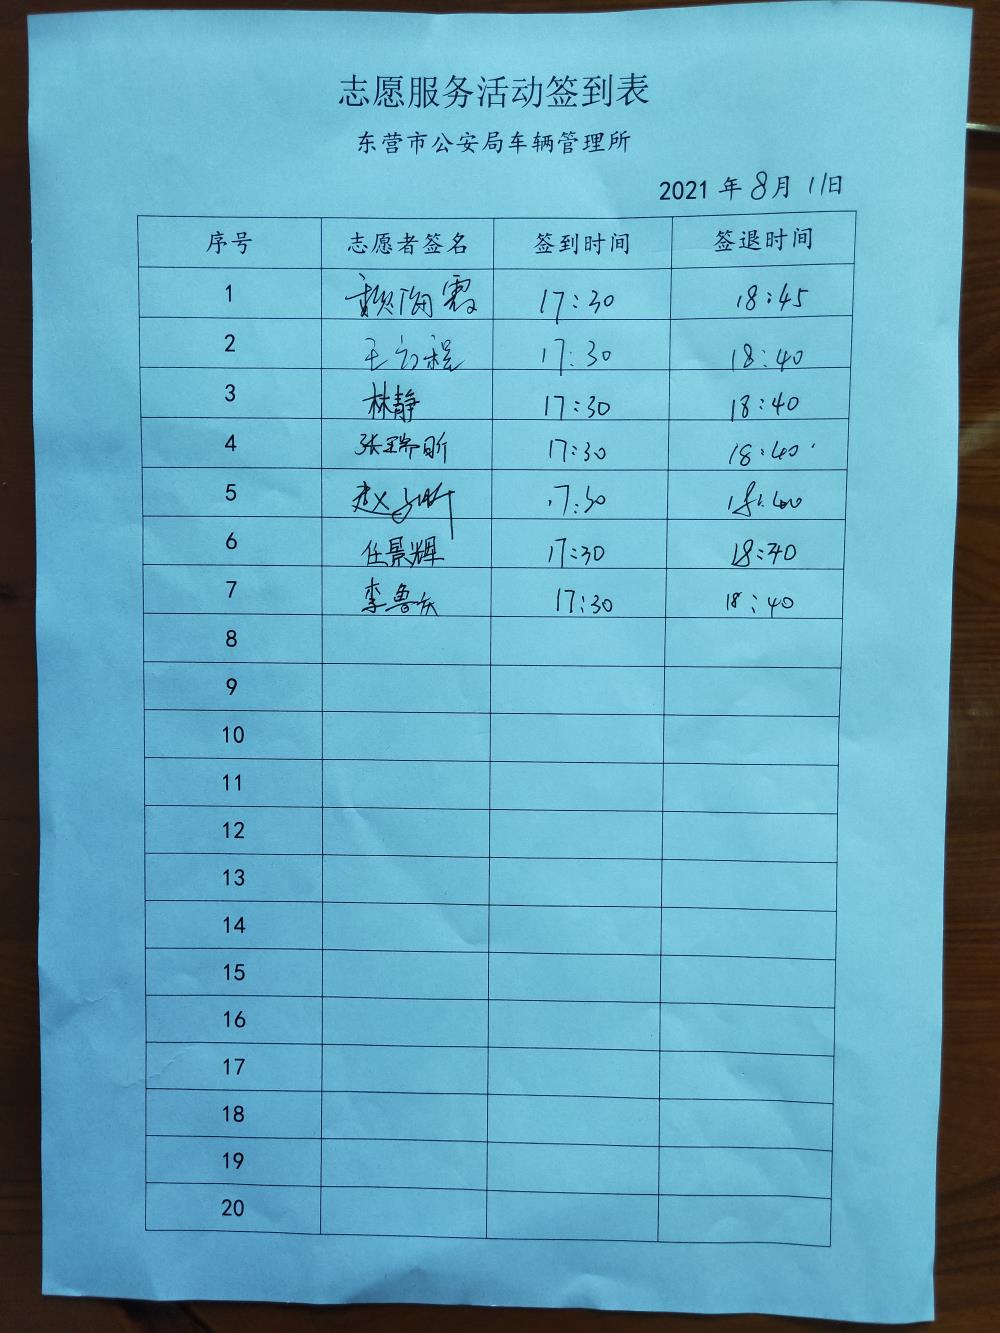 志愿服务活动签到表
东营市公安局车辆管理所
2021年8月11日
序号 志愿者签名 签到时间 签退时间
1 17:30 18:45
2 王 程 17:30 18:40
3 林静 17:30 18:40
4 张瑞昕 17:30 18:40
5 赵子昕 17:30 18:40
6 任景辉 17:30 18:40
7 李鲁东 17:30 18:40
8
9
10
11
12
13
14
15
16
17
18
19
20